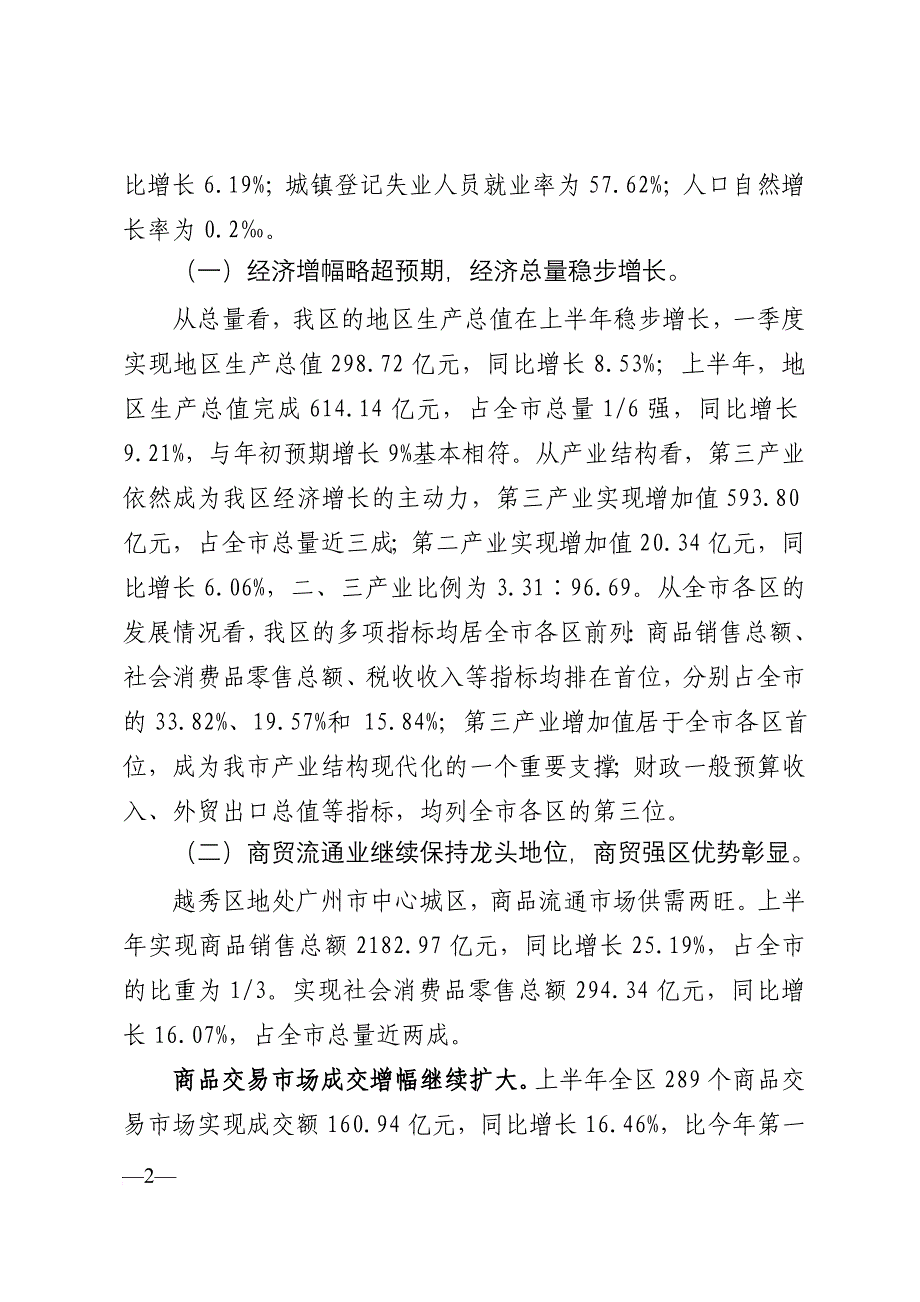 比增长 6.19%；城镇登记失业人员就业率为 57.62%；人口自然增
长率为 0.2‰。
（一）经济增幅略超预期，经济总量稳步增长。
从总量看，我区的地区生产总值在上半年稳步增长，一季度
实现地区生产总值 298.72 亿元，同比增长 8.53%；上半年，地
区生产总值完成 614.14 亿元，占全市总量 1/6 强，同比增长
9.21%，与年初预期增长 9%基本相符。从产业结构看，第三产业
依然成为我区经济增长的主动力，第三产业实现增加值 593.80
亿元，占全市总量近三成；第二产业实现增加值 20.34 亿元，同
比增长 6.06%，二、三产业比例为 3.31∶96.69。从全市各区的
发展情况看，我区的多项指标均居全市各区前列：商品销售总额、
社会消费品零售总额、税收收入等指标均排在首位，分别占全市
的 33.82%、19.57%和 15.84%；第三产业增加值居于全市各区首
位，成为我市产业结构现代化的一个重要支撑；财政一般预算收
入、外贸出口总值等指标，均列全市各区的第三位。
（二）商贸流通业继续保持龙头地位，商贸强区优势彰显。
越秀区地处广州市中心城区，商品流通市场供需两旺。上半
年实现商品销售总额 2182.97 亿元，同比增长 25.19%，占全市
的比重为 1/3。实现社会消费品零售总额 294.34 亿元，同比增
长 16.07%，占全市总量近两成。
商品交易市场成交增幅继续扩大。上半年全区 289 个商品交
易市场实现成交额 160.94 亿元，同比增长 16.46%，比今年第一
—2—